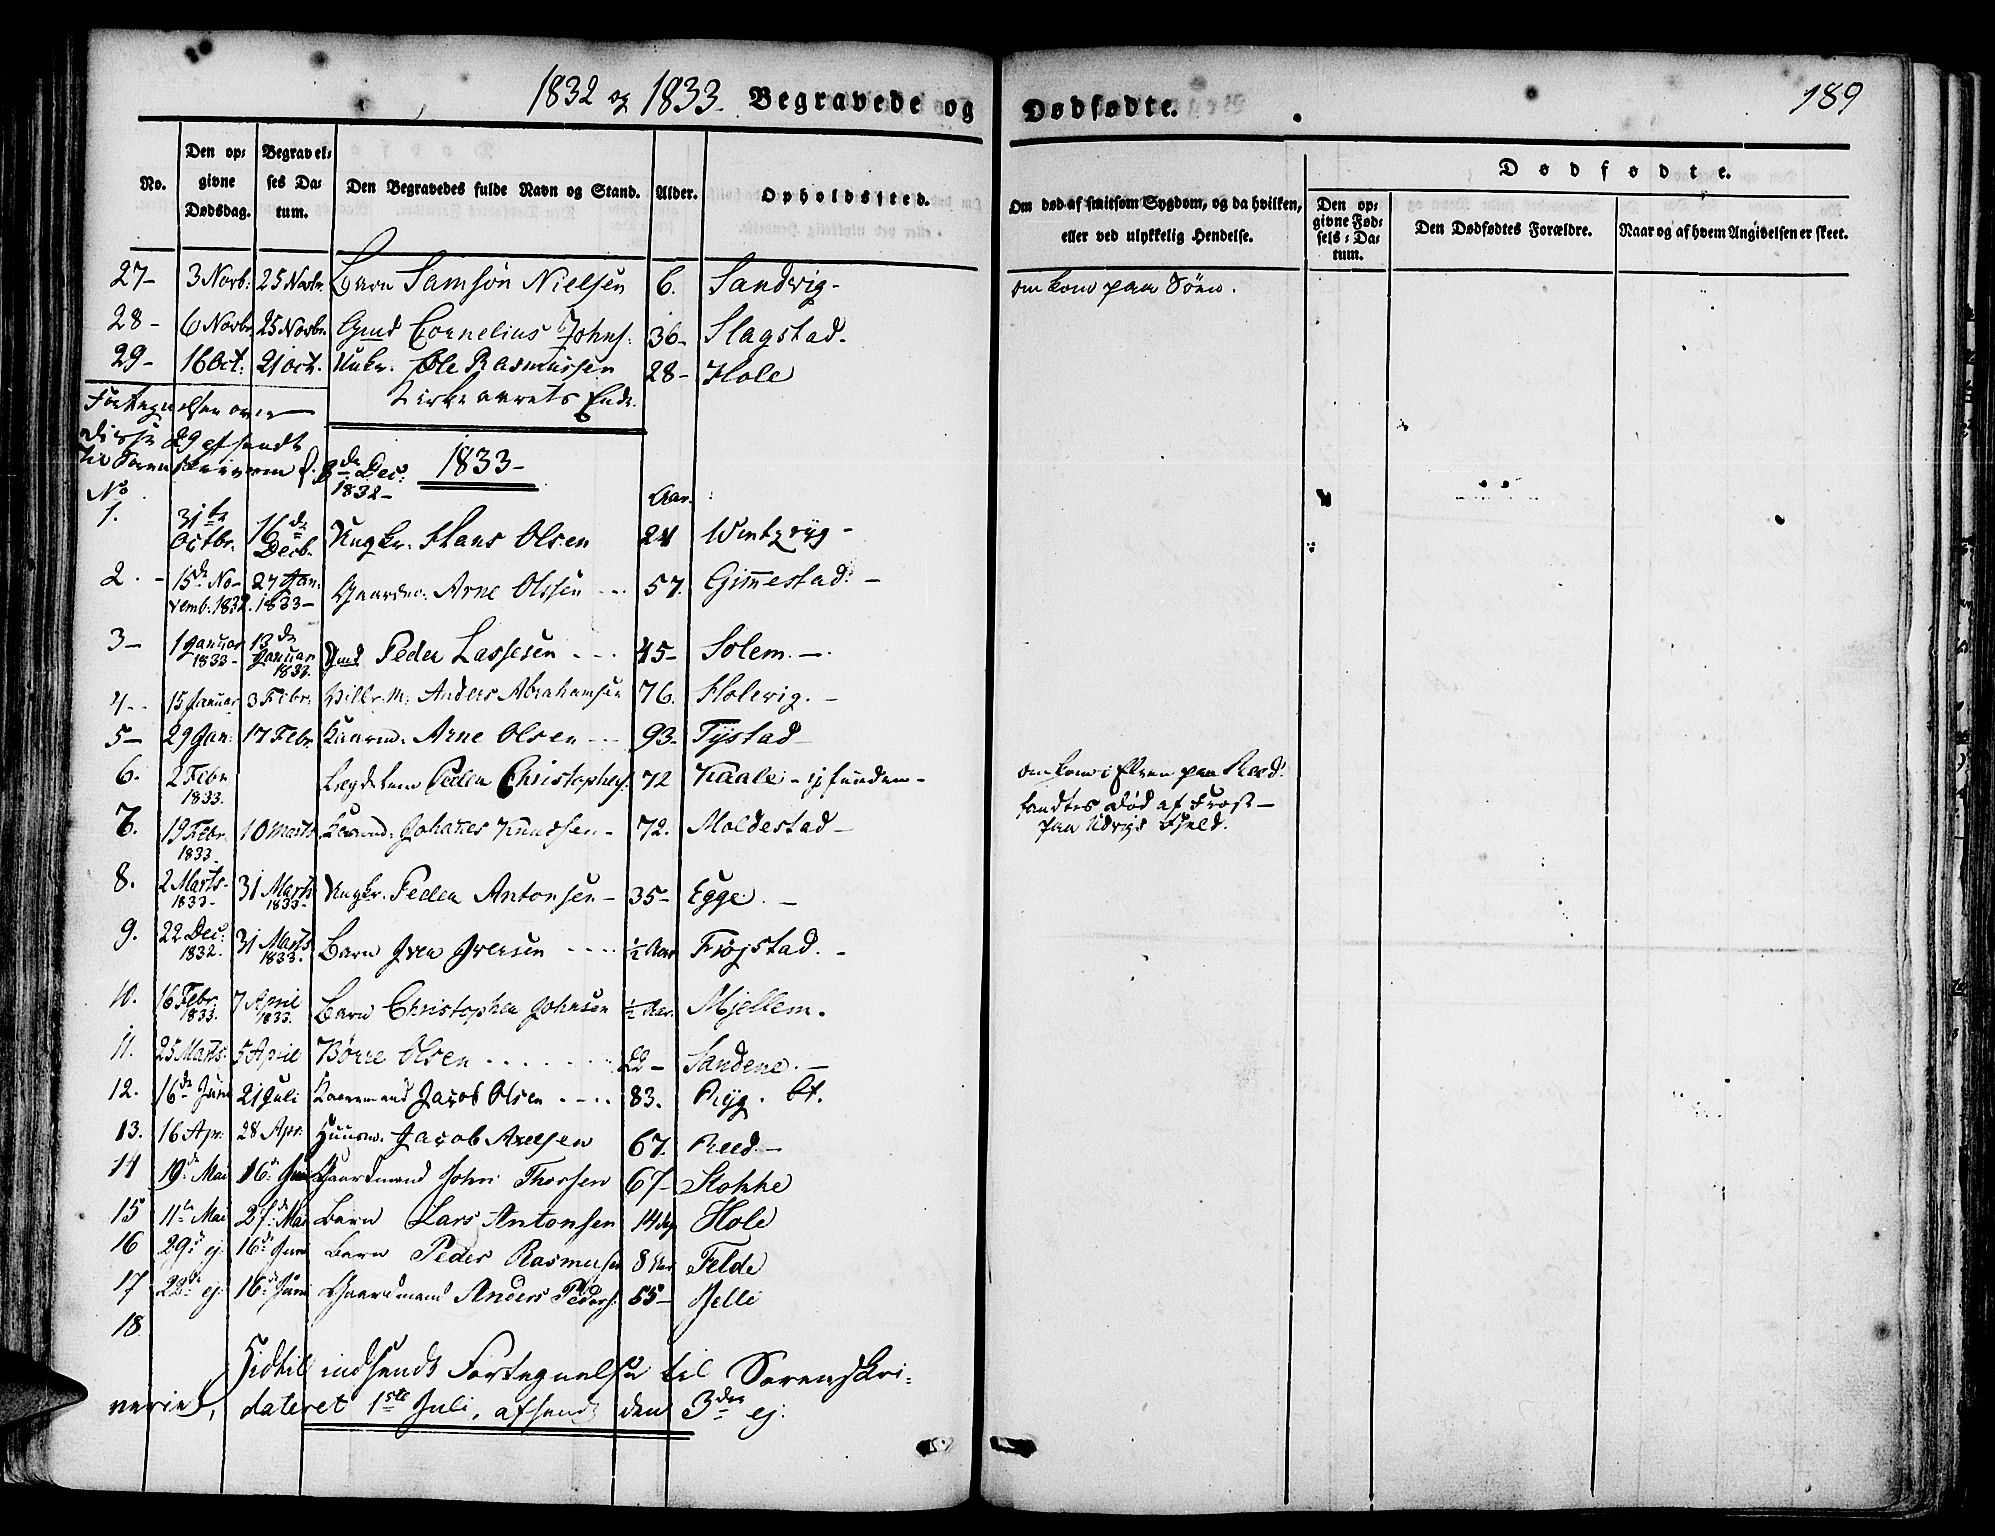 1832 og 1833. Begravede og Dødfødte. 189
No. Den opgivne Dødsdag. Begravelses Datum. Den Begravedes fulde Navn og Stand. Alder. Opholdssted. Om død af smitsom Sygdom, og da hvilken, eller ved ulykkelig Hendelse. Dødfødte. Den opgivne Fødsels-Datum. Den Dødfødtes Forældre. Naar og af hvem Angivelsen er skeet.
27- 3 Novb: 25 Novbr. Barn Samsøn Nielsen 6. Sandvig- omkom paa Søen.
28- 6 Novbr 25 Novbr. Gmd Cornelius Johns: 36- Slagstad.
29- 16 Oct: 21 Oct. Unkr. Ole Rasmussen 28- Hole
Kirkeaarets Ende.
Fortegnelsen over
disse 29 afsendt
til Sorenskriveren d. 8de Dec:
1832-
1833-
No Aar.
1. 31te Octbr. 16de Decb. Ungkr. Hans Olsen 24 Wentzryg-
2.- 15de Novemb. 1832. 27 Jan: 1833- Gaardm: Arne Olsen 57. Gim̄estad.-
3- 1 Januar 1833- 13de Januar 1833. Gmd Peder Lassesen 45- Solem.-.
4- 15 Januar 3 Febr: Anders Abrahamsen 76. Holevig.-
5- 29 Jan: 17 Febr. Kaarmd. Arne Olsen 93- Tystad
6. 2 Febr 1833. Lægdslem Peder Christophers. 72 Kaale- ej funden- omkom i Elven paa Reed.
7. 19 Febr. 1833. 10 Marts Kaarmd: Johan̄es Knudsen- 72. Moldestad- fandtes død af Frost-
paa Udvigs Fjeld.
8. 2 Marts- 1833- 31 Marts 1833- Ungkr. Peder Antonsen- 35- Egge.-
9. 22 Dec: 1832. 31 Marts 1833. Barn Iver Iversen ½ Aar Frøjstad.-
10. 16 Febr. 1833. 7 April 1833. Barn Christopher Johnsen ½ Aar. Mjellem.
11. 25 Marts. 5 April Børre Olsen 22- Sandene.-
12. 16de Juni 21 Juli Kaarmand Jacob Olsen 83. Ryg.
13. 16 Apr. 28 Apr. Huusm. Jacob Axelsen 67. Reed-
14 19de Mai 16de Juni Gaardmand John Thorsen 67- Stokke
15 11te Mai 27de Mai Barn Lars Antonsen 14 dg Hole
16 29de ej. 16de Juni Barn Peder Rasmusen 8 Aar Felde
17 22de ej. 16de Juni Gaardmand Anders Peders: 55- Jelle
18.
Hidtil indsendt Fortegnelse til Sorenskri-
veriet, dateret 1ste Juli, afsendt den 3die ej.